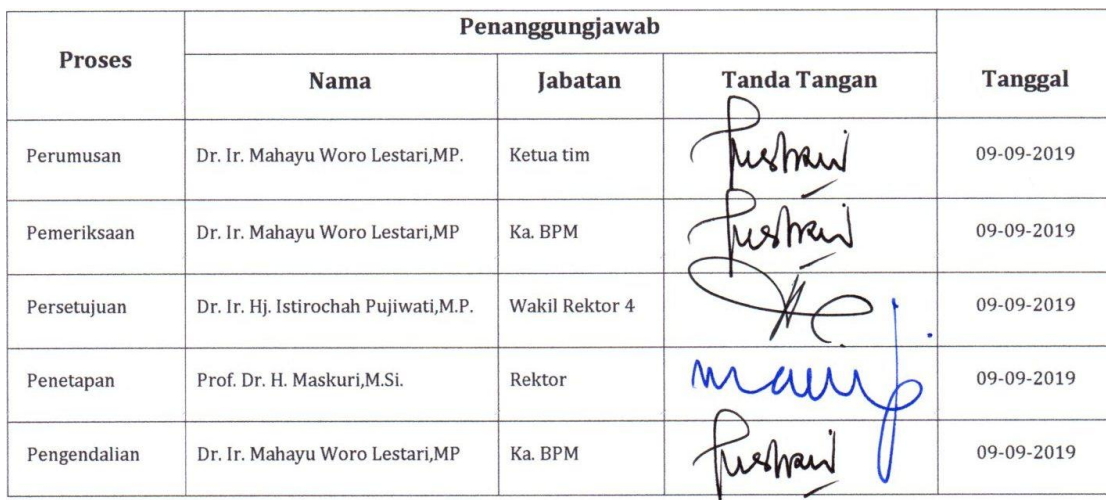 Proses Penanggungjawab Tanggal
Nama Jabatan Tanda Tangan
Perumusan Dr. Ir. Mahayu Woro Lestari,MP. Ketua tim 09-09-2019
Pemeriksaan Dr. Ir. Mahayu Woro Lestari,MP Ka. BPM 09-09-2019
Persetujuan Dr. Ir. Hj. Istirochah Pujiwati,M.P. Wakil Rektor 4 09-09-2019
Penetapan Prof. Dr. H. Maskuri,M.Si. Rektor 09-09-2019
Pengendalian Dr. Ir. Mahayu Woro Lestari,MP Ka. BPM 09-09-2019